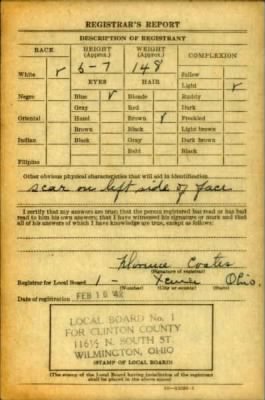 REGISTRAR'S REPORT
DESCRIPTION OF REGISTRANT
RACE HEIGHT (Approx.) WEIGHT (Approx.) COMPLEXION
5-7 148
White ✓ Sallow
EYES HAIR Light ✓
Negro Blue ✓ Blonde Ruddy
Gray Red Dark
Oriental Hazel Brown ✓ Freckled
Brown Black Light brown
Indian Black Gray Dark brown
Bald Black
Filipino
Other obvious physical characteristics that will aid in identification
scar on left side of face
I certify that my answers are true; that the person registered has read or has had
read to him his own answers; that I have witnessed his signature or mark and that
all of his answers of which I have knowledge are true, except as follows:
Florence Coates
(Signature of registrar)
Registrar for Local Board 1 - Xenia Ohio.
(Number) (City or county) (State)
Date of registration FEB 16 '42
LOCAL BOARD No. 1
FOR CLINTON COUNTY
116½ N. SOUTH ST.
WILMINGTON, OHIO
(STAMP OF LOCAL BOARD)
(The stamp of the Local Board having jurisdiction of the registrant
shall be placed in the above space.)